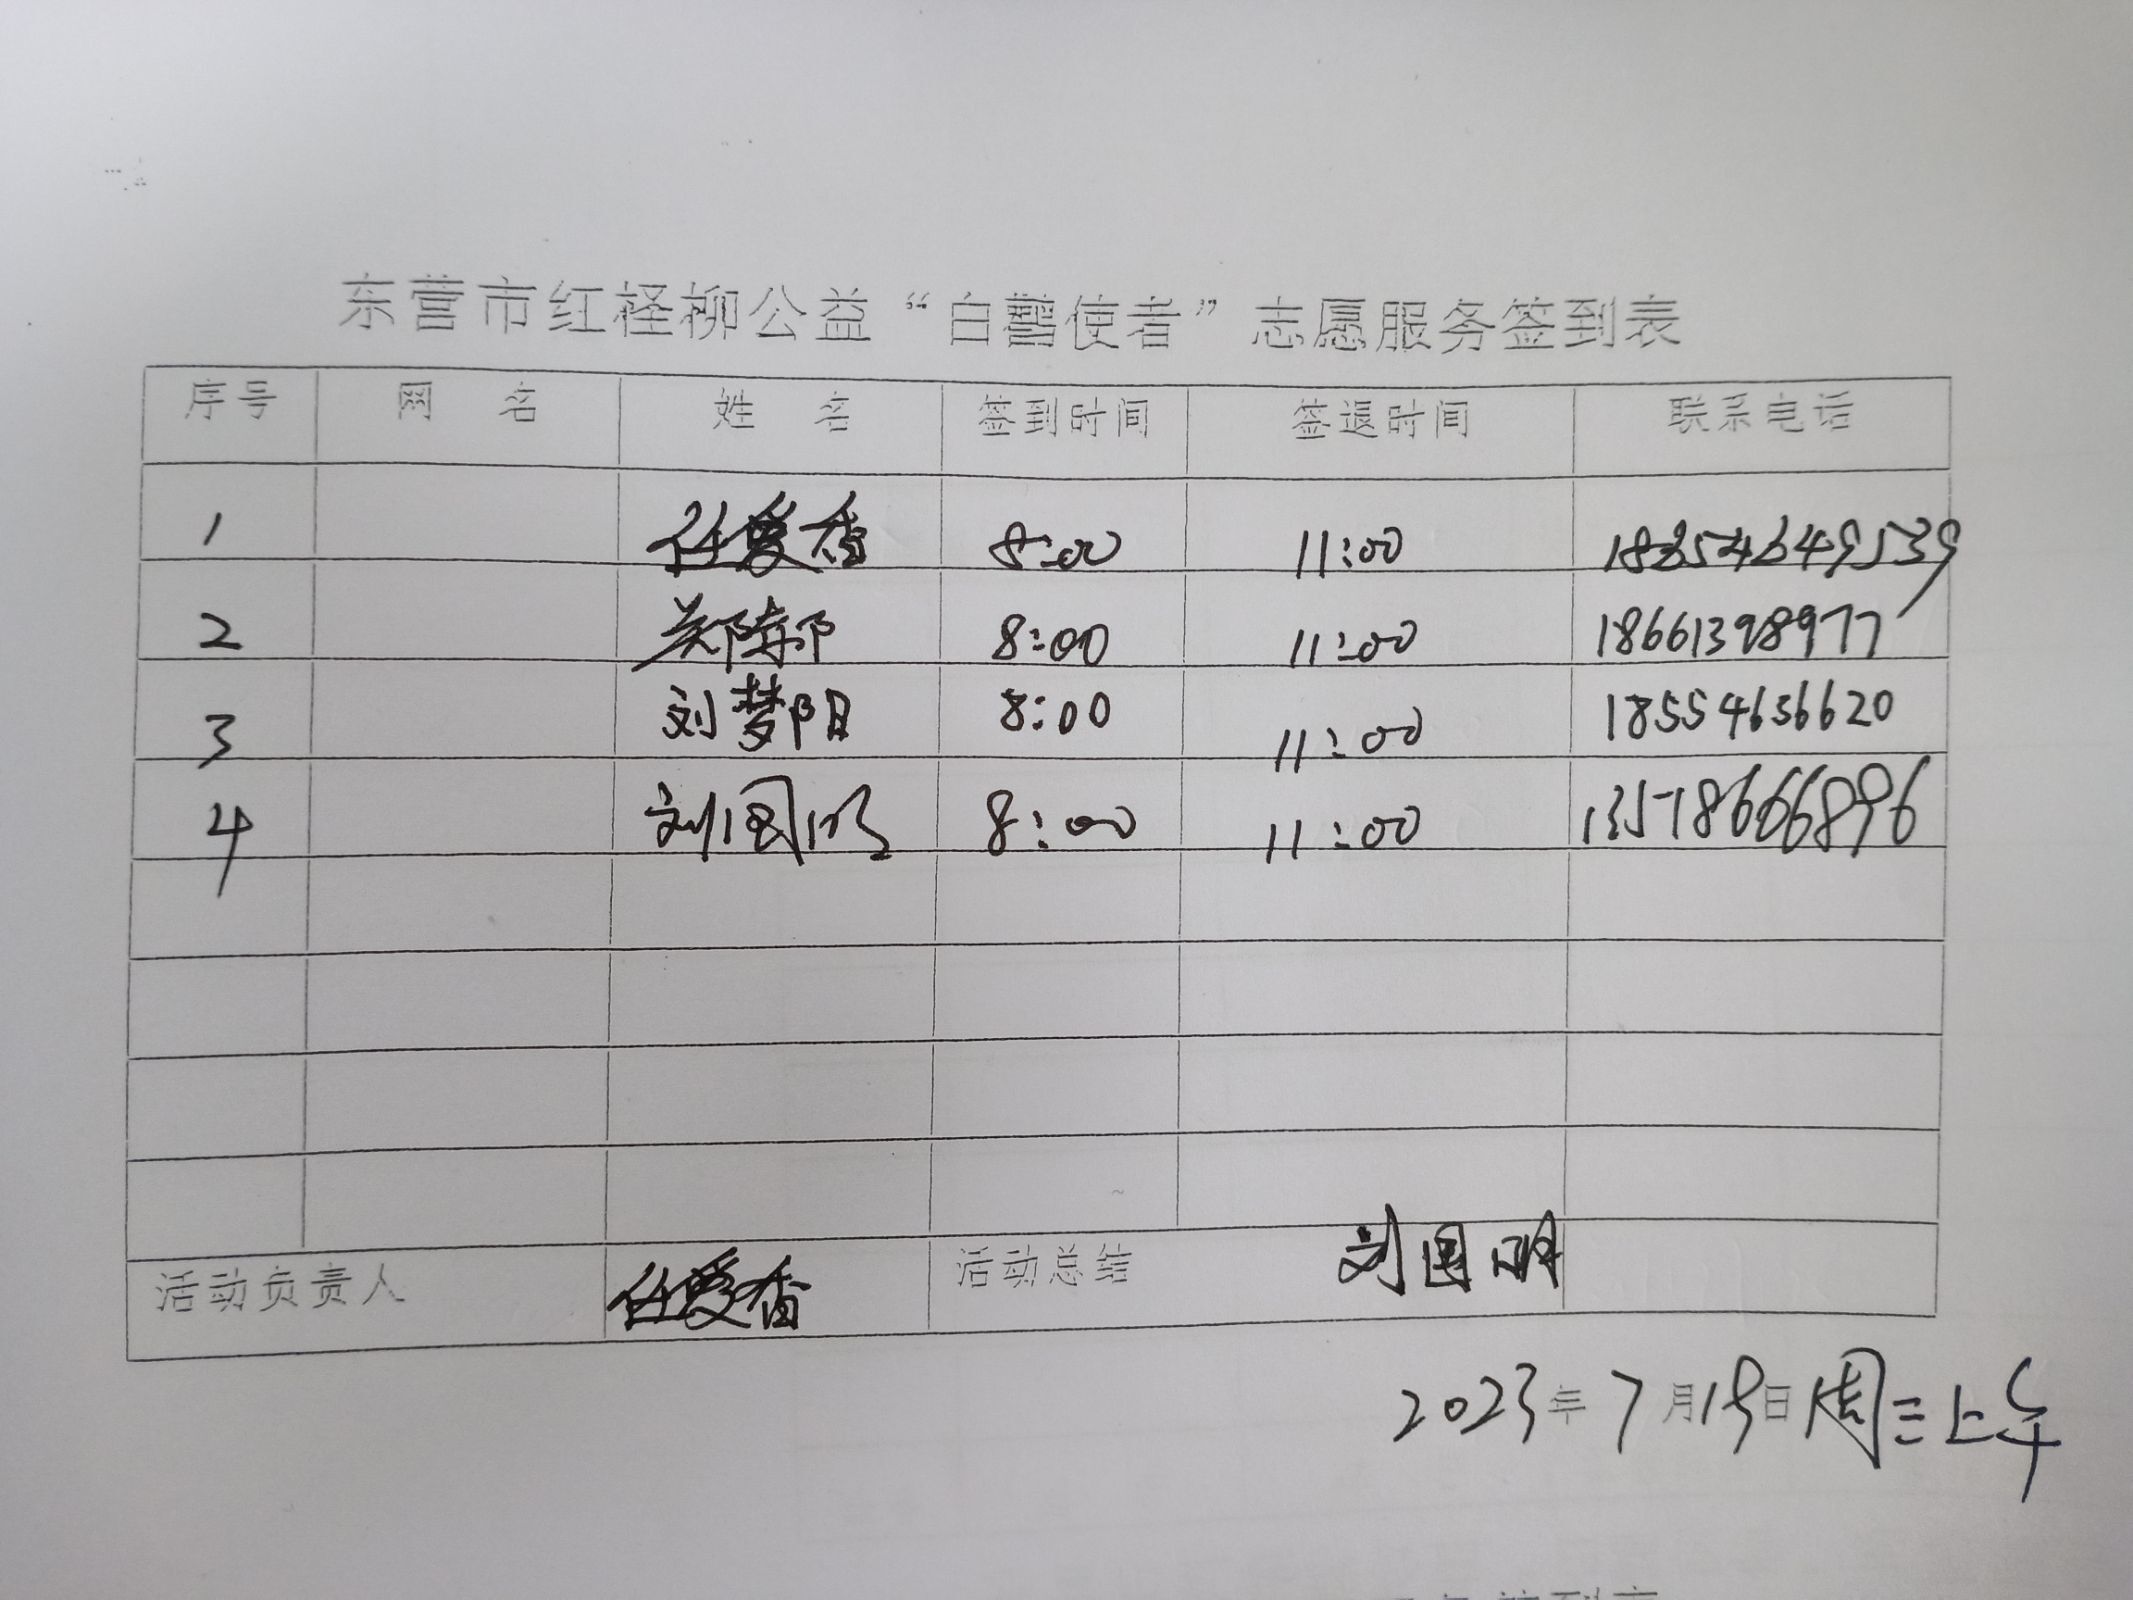 东营市红柽柳公益“白鹭使者”志愿服务签到表
序号 网 名 姓 名 签到时间 签退时间 联系电话
1 任爱香 8:00 11:00
2 8:00 11:00 18661398977
3 刘梦阳 8:00 11:00 18554656620
4 刘国明 8:00 11:00
活动负责人 任爱香 活动总结 刘国明
2023年7月19日周三上午